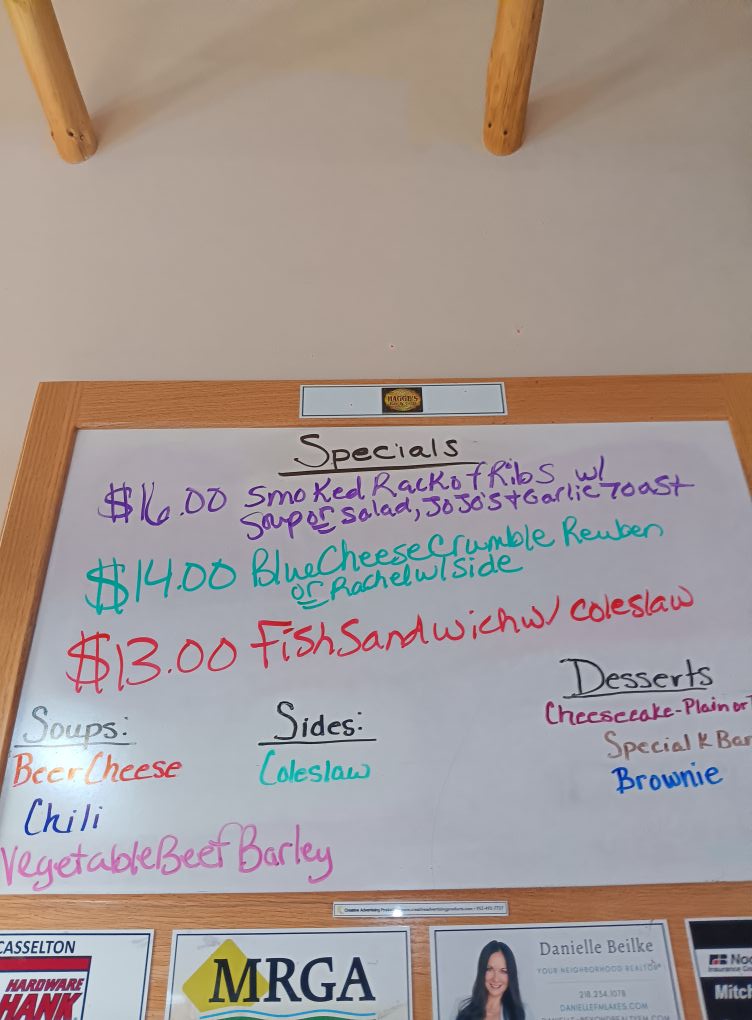 HAGGE'S
Specials
$16.00 Smoked Rack of Ribs w/
Soup or Salad, JoJo's + Garlic Toast
$14.00 Blue Cheese Crumble Reuben
or Rachel w/ Side
$13.00 Fish Sandwich w/ coleslaw
Soups:
Beer Cheese
Chili
Vegetable Beef Barley
Sides:
Coleslaw
Desserts
Cheesecake - Plain or
Special K Bar
Brownie
CASSELTON
HARDWARE
HANK
MRGA
Danielle Beilke
YOUR NEIGHBORHOOD REALTOR®
218.234.1078
DANIELLEFMLAKES.COM
Insurance
Mitch